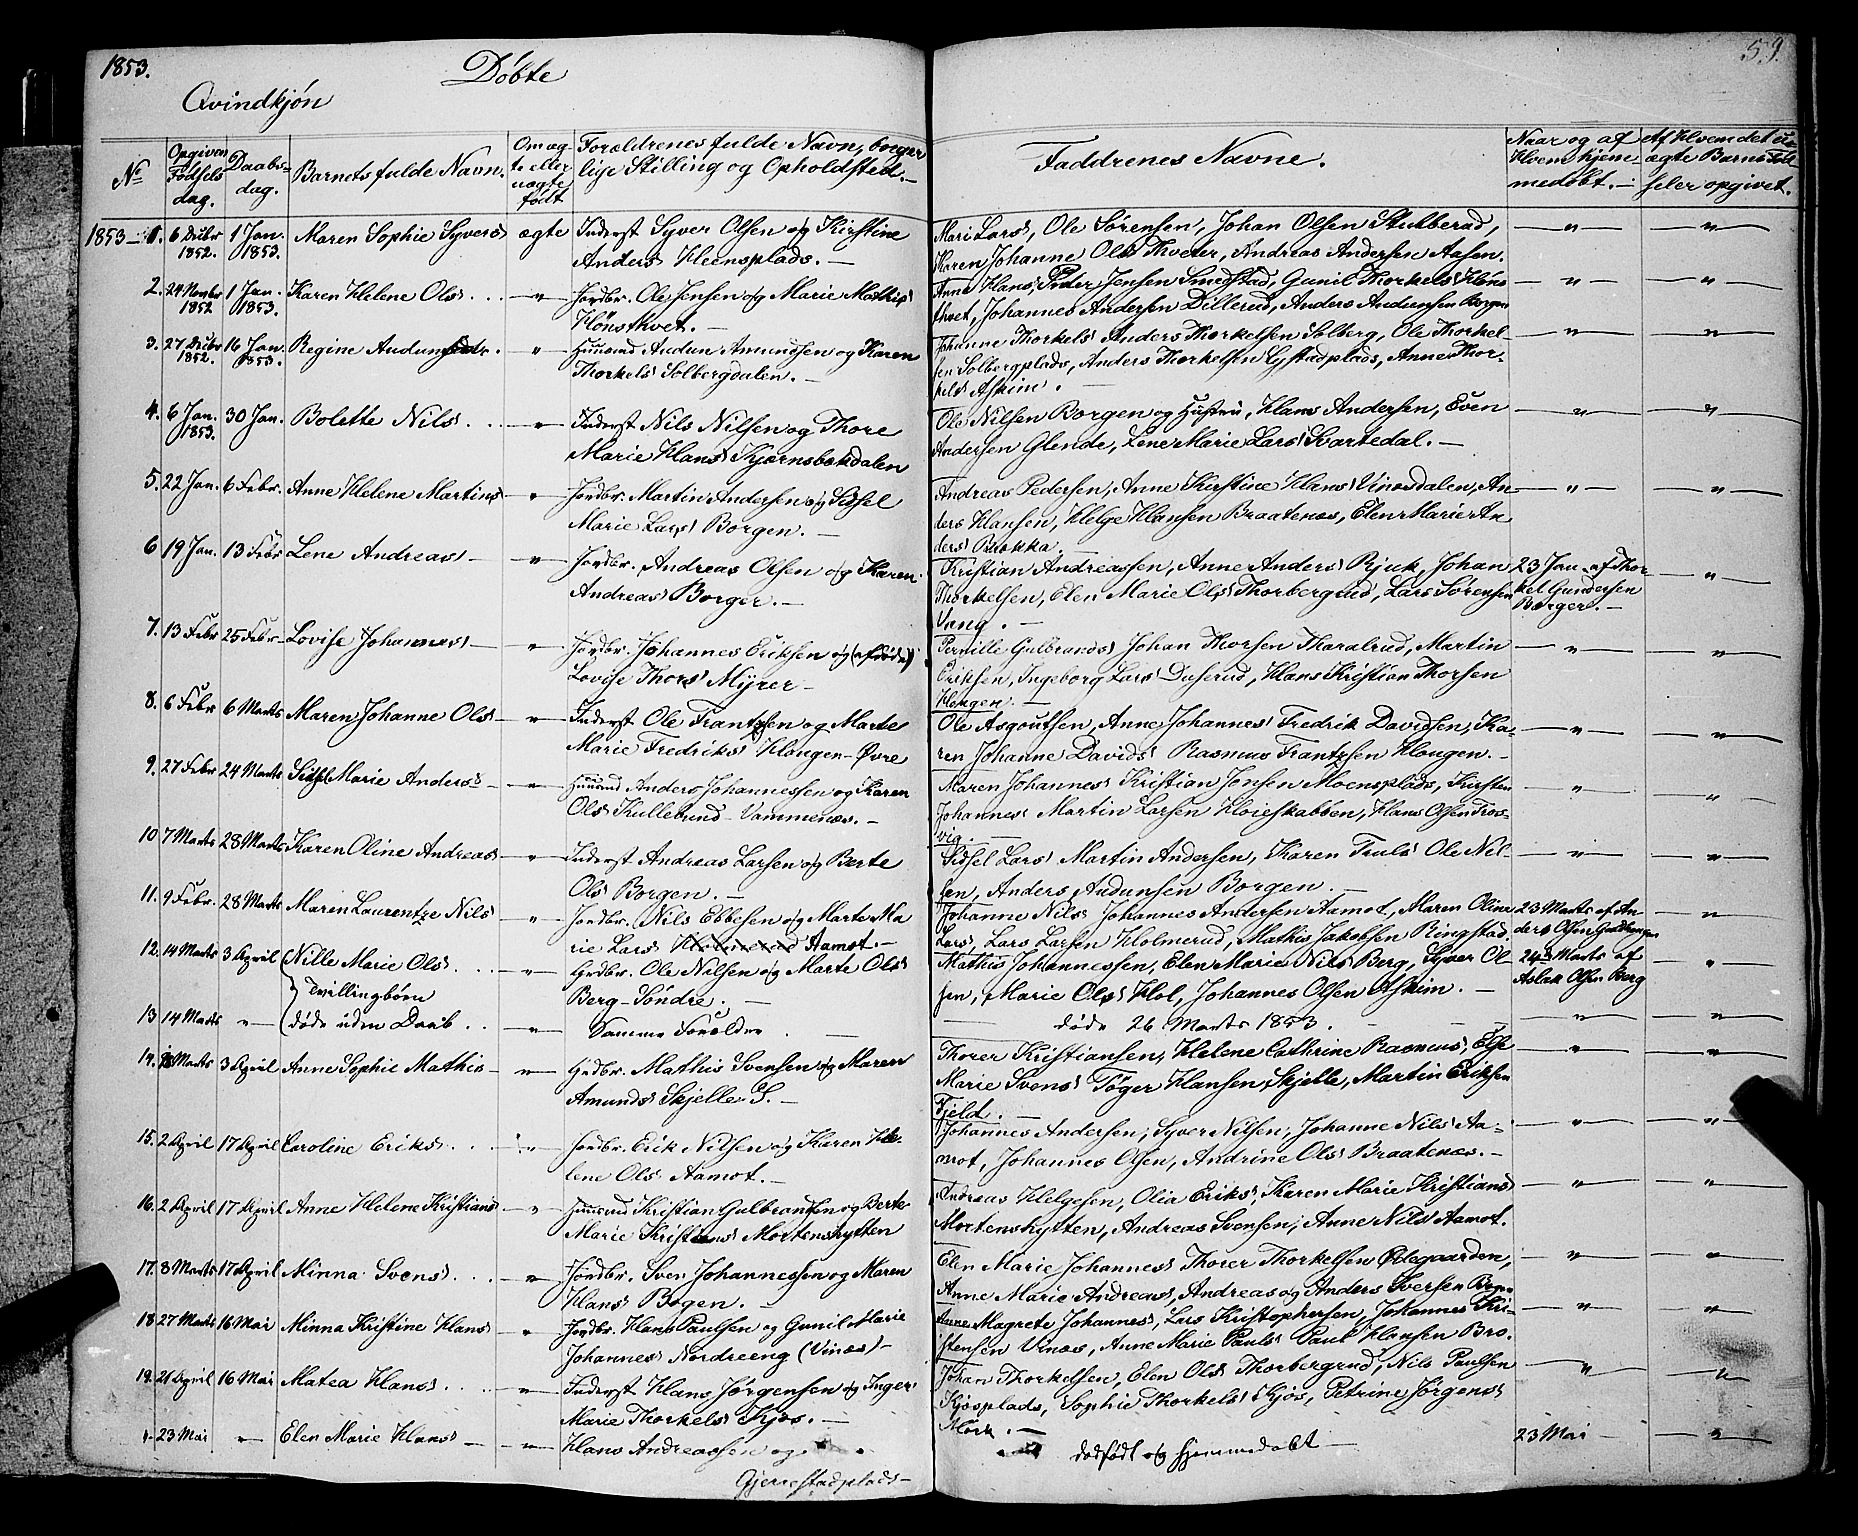 1853.
Döbte
59.
Qvindkjön
No
Opgiven Födsels dag.
Daabs- dag.
Barnets fulde Navn.
Om æg- te eller uægte födt
Forældrenes fulde Navn, borger lige Stilling og Opholdsted.—
Faddrenes Navne.
Naar og af Hvem hjem- medöbt.—
Af Hvem det u- ægte Barns Fød- seler opgivet.
1853— 1. 6 Decbr 1852. 1 Jan. 1853. Maren Sophie Syvers ægte Inderst Syver Olsen og Kirstine
Anders Heensplads.—
Mari Lars, Ole Sörensen, Johan Olsen Stubberud,
Karen Johanne Ols Thveter, Andreas Andersen Aasen.
2. 24 Novbr 1852 1 Jan. 1853. Karen Helene Ols. — " — Jordbr. Ole Jensen og Marie Mathis
Hönsthvet.—
Anne Hans, Peder Jensen Smedstad, Gunil Thorkels Höns
thvet, Johannes Andersen Dillerud, Anders Andersen Borgen
3. 27 Decbr 1852. 16 Jan. 1853. Regine Audunsdtr. " Huusmd Audun Amundsen og Karen
Thorkels Solbergdalen.—
Johanne Thorkels Anders Thorkelsen Solberg, Ole Thorkel-
sen Solbergplads, Anders Thorkelsen Gystadplads, Anne Thor-
kels Askim.
4. 6 Jan. 1853. 30 Jan. Bolette Nils. — " — Inderst Nils Nilsen og Thore
Marie Hans Kjærnsbækdalen
Ole Nilsen Borgen og Hustru, Hans Andersen, Even
Andersen Glende, Lene Marie Lars Svartedal.—
5. 22 Jan. 6 Febr. Anne Helene Martins — " Jordbr. Martin Andersen og Sidsel
Marie Lars Borgen.—
Andreas Pedersen, Anne Kirstine Hans Vinæsdalen, An-
ders Hansen, Helge Hansen Braatenæs, Elen Marie An
ders Brækka.
6 19 Jan. 13 Febr Lene Andreas — " — Jordbr. Andreas Olsen og Karen
Andreas Borger.—
Kristian Andreassen, Anne Anders Rjuk, Johan
Thorkelsen, Elen Marie Ols Thorbergrud, Lars Sörensen
Vang.—
23 Jan. af Thor
kel Gundersen
Borger.—
7. 13 Febr 25 Febr Lovise Johannes — " Jordbr. Johannes Eriksen og (afdöde)
Lovise Thors Myrer—
Pernille Gulbrands Johan Thorsen Tharalrud, Martin
Eriksen, Ingeborg Lars Duserud, Hans Kristian Thorsen
Hougen.—
8. 6 Febr 6 Marts Maren Johanne Ols — " — Inderst Ole Frantzsen og Marte
Marie Fredriks Hougen-Övre
Ole Asgoutsen, Anne Johannes Fredrik Davidsen, Ka-
ren Johanne Davids Rasmus Frantzsen Hougen.—
9. 27 Febr 24 Marts Sidsel Marie Anders — " — Huusmd Anders Johannessen og Karen
Ols Kullebund-Vammenæs.—
Maren Johannes Kristian Jonsen Moensplads, Kirsten
Johannes Martin Larsen Höieskabben, Hans Olsen Tros-
vig.—
10 7 Marts 28 Marts Karen Oline Andreas — " — Inderst Andreas Larsen og Berte
Ols Borgen.—
Sidsel Lars Martin Andersen, Karen Truls Ole Nil-
sen, Anders Audunsen Borgen.
11. 9 Febr. 28 Marts Maren Laurentze Nils " Jordbr. Nils Ebbesen og Marte Ma
rie Lars Holmerud Aamot.—
Johanne Nils Johannes Andersen Aamot, Maren Oline
Lars, Lars Larsen Holmerud, Mathis Jakobsen Ringstad.
23 Marts af An
ders Olsen
12. 14 Marts 3 April Nille Marie Ols. — " — Grdbr. Ole Nilsen og Marte Ols
Tvillingbörn Berg-Söndre.—
Mathis Johannessen, Elen Marie Nils Berg, Syver Ol-
sen, Marie Ols Hol, Johannes Olsen Askim.—
24de Marts af
Aslak Olsen Berg
13 14 Marts — " — döde uden Daab. — " — Samme Forældre
döde 26 Marts 1853.
14. 18 Marts 3 April Anne Sophie Mathis — " — Grdbr. Mathis Svensen og Maren
Amunds Skjelle S.—
Thorer Kristiansen, Helene Cathrine Rasmus, Else
Marie Svens Töger Hansen Skjelle, Martin Eriksen
Fjeld.—
15. 2 April 17 April Caroline Eriks. — " — Jordbr. Erik Nilsen og Karen He-
lene Ols Aamot.—
Johannes Andersen, Syver Nilsen, Johanne Nils Aa-
mot, Johannes Olsen, Andrine Ols Braatenæs.—
16. 2 April 17 April Anne Helene Kristians — " Huusmd Kristian Gulbrandsen og Berte
Marie Kristians Mortenshytten
Andreas Helgesen, Olia Eriks, Karen Marie Kristians
Mortenshytten, Andreas Svensen, Anne Nils Aamot.
17. 3 Marts 17 April Minna Svens. — " Jordbr. Sven Johannessen og Maren
Hans Bogen.—
Elen Marie Johannes Thorer Thorkelsen Ödegaarden,
Anne Marie Andreas, Andreas og Anders Iversen Bogen
18 27 Marts 16 Mai Minna Kristine Hans — " Jordbr. Hans Paulsen og Gunil Marie
Johannes Nordreeng (Vinæs)—
Anne Magrete Johannes, Lars Kristophersen, Johannes Kri-
stensen Vinæs, Anne Marie Pauls Paul Hansen Bro.
19. 21 April 16 Mai Matea Hans. — " — Inderst Hans Jörgensen og Inger
Marie Thorkels Kjös.—
Johan Thorkelsen, Elen Ols Thorbergrud, Nils Paulsen
Kjösplads, Sophie Thorkels Kjös, Petrine Jörgens
Mörk.—
23 Mai — " — Elen Marie Hans — " — Hans Andreassen og
Gjerrestadplads—
dödfödt og hjemmedöbt—
23 Mai